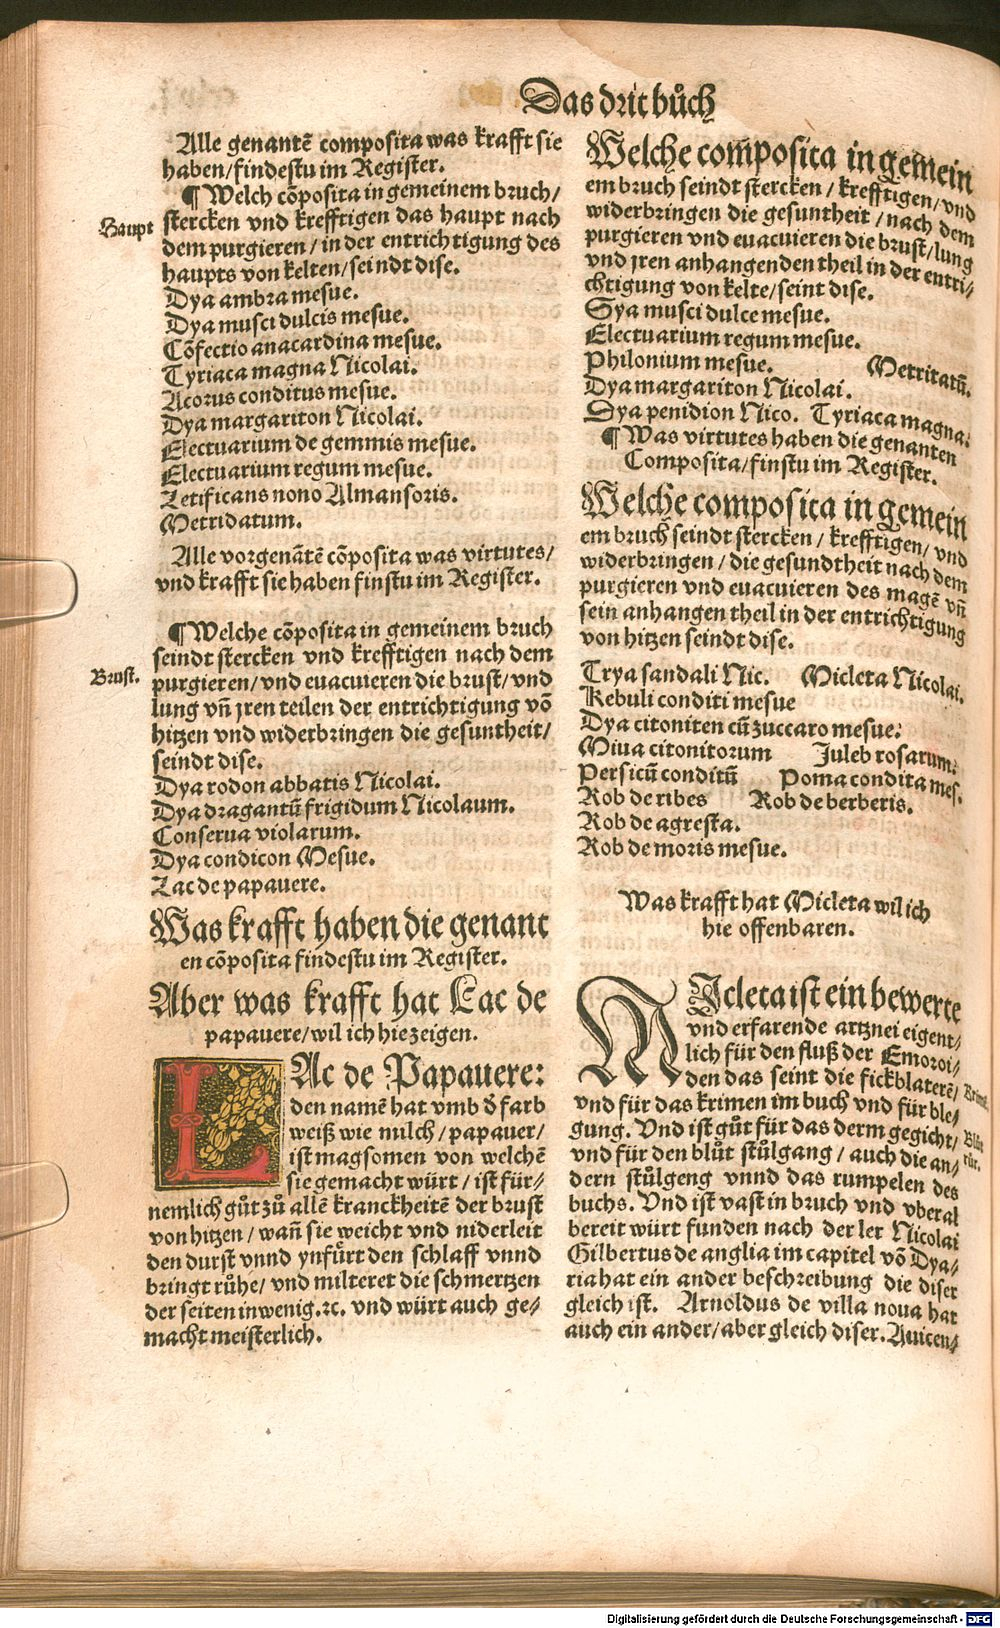 Das drit bůch
Alle genantē composita was krafft sie
haben/findestu im Register.
¶ Welch cōposita in gemeinem bruch/
Haupt
stercken vnd krefftigen das haupt nach
dem purgieren/in der entrichtigung des
haupts von kelten/seindt dise.
Dya ambra mesue.
Dya musci dulcis mesue.
Cōfectio anacardina mesue.
Tyriaca magna Nicolai.
Acorus conditus mesue.
Dya margariton Nicolai.
Electuarium de gemmis mesue.
Electuarium regum mesue.
Letificans nono Almansoris.
Metridatum.
Alle vorgenātē cōposita was virtutes/
vnd krafft sie haben finstu im Register.
¶ Welche cōposita in gemeinem bruch
seindt stercken vnd krefftigen nach dem
Brust.
purgieren/vnd euacuieren die brust/vnd
lung vñ jren teilen der entrichtigung vō
hitzen vnd widerbringen die gesuntheit/
seindt dise.
Dya rodon abbatis Nicolai.
Dya dragantū frigidum Nicolaum.
Conserua violarum.
Dya condicon Mesue.
Lac de papauere.
Was krafft haben die genant
en cōposita findestu im Register.
Aber was krafft hat Lac de
papauere/wil ich hie zeigen.
LAc de Papauere:
den namē hat vmb d̄ farb
weiß wie milch/papauer/
ist magsomen von welchē
sie gemacht würt/ist für⸗
nemlich gůt zů allē kranckheitē der brust
von hitzen/wañ sie weicht vnd niderleit
den durst vnnd ynfůrt den schlaff vnnd
bringt růhe/vnd milteret die schmertzen
der seiten inwenig.ꝛc. vnd würt auch ge⸗
macht meisterlich.
Welche composita in gemein
em bruch seindt stercken/krefftigen/vnd
widerbringen die gesuntheit/nach dem
purgieren vnd euacuieren die brust/lung
vnd jren anhangenden theil in der entri⸗
chtigung von kelte/seint dise.
Dya musci dulce mesue.
Electuarium regum mesue.
Philonium mesue. Metritatū.
Dya margariton Nicolai.
Dya penidion Nico. Tyriaca magna.
¶ Was virtutes haben die genanten
Composita/finstu im Register.
Welche composita in gemein
em bruch seindt stercken/krefftigen/vnd
widerbringen/die gesundtheit nach dem
purgieren vnd euacuieren des magē vñ
sein anhangen theil in der entrichtigung
von hitzen seindt dise.
Trya sandali Nic. Micleta Nicolai.
Kebuli conditi mesue
Dya citoniten cū zuccaro mesue.
Miua citonitorum Juleb rosarum.
Persicū conditū Poma condita mes.
Rob de ribes Rob de berberis.
Rob de agresta.
Rob de moris mesue.
Was krafft hat Micleta wil ich
hie offenbaren.
MIcleta ist ein bewerte
vnd erfarende artznei eigent⸗
lich für den fluß der Emoroi⸗
den das seint die fickblaterē/
vnd für das krimen im buch vnd für ble⸗
Krimē.
gung. Vnd ist gůt für das derm gegicht/
Blůt
vnd für den blůt stůlgang/auch die an⸗
růr.
dern stůlgeng vnnd das rumpelen des
buchs. Vnd ist vast in bruch vnd vberal
bereit würt funden nach der ler Nicolai
Gilbertus de anglia im capitel vō Dya⸗
ria hat ein ander beschreibung die diser
gleich ist. Arnoldus de villa noua hat
auch ein ander/aber gleich diser. Auicen⸗
Digitalisierung gefördert durch die Deutsche Forschungsgemeinschaft - DFG